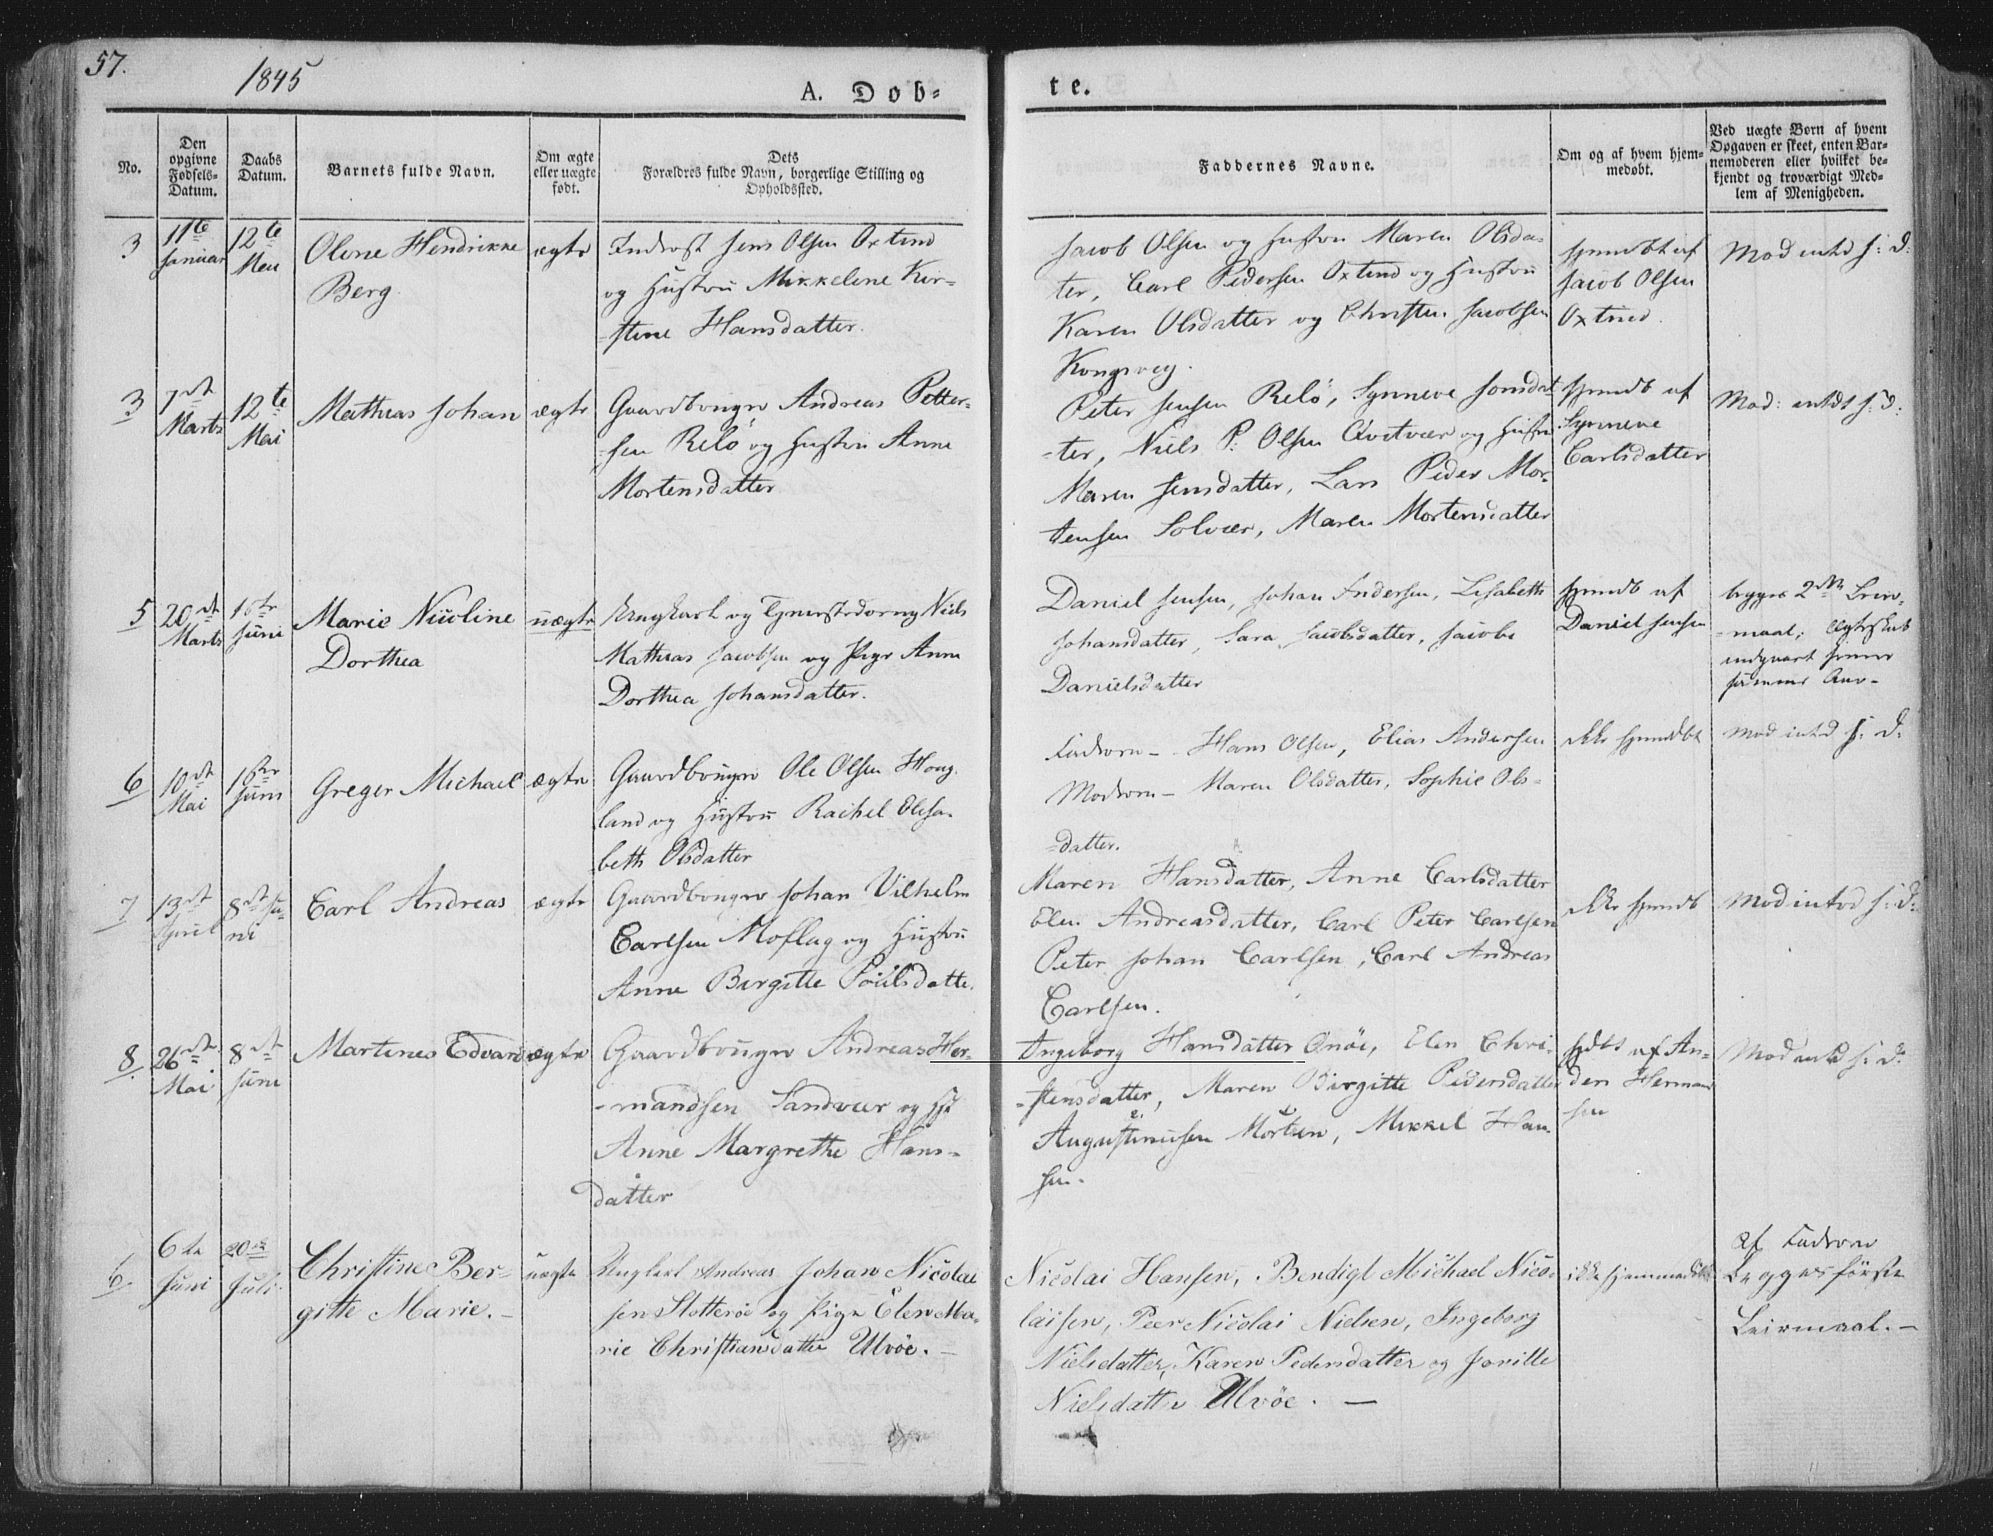 57.
1845
A. Døb-
te.
No.
Den opgivne Fødsels-Datum.
Daabs Datum.
Barnets fulde Navn.
Om ægte eller uægte født.
Dets Forældres fulde Navn, borgerlige Stilling og Opholdssted.
Faddernes Navne.
Om og af hvem hjem-medøbt.
Ved uægte Børn af hvem Opgaven er skeet, enten Bar-nemoderen eller hvilket be-kjendt og troværdigt Med-lem af Menigheden.
3
11te Januar
12te Mai
Olene Hendrikke
Berg
ægte
Inderst Jens Olsen Oxtind
og Hustru Mikkeline Kir-
stine Hansdatter.
Jacob Olsen og Hustru Maren Olsdat-
ter, Carl Pedersen Oxtind og Hustru
Karen Olsdatter og Christen Jacobsen
Kongsvey.
hjemdbt af
Jacob Olsen
Oxtind.
3
7de Marts
12te Mai
Mathias Johan
ægte
Gaardbruger Andreas Petter-
sen Relø og Hustru Anne
Mortensdatter
Peter Jensen Relø, Synneve Jonsdat-
ter, Niels P. Olsen Qvitvær og Hustru
Maren Jensdatter, Lars Peder Mor-
tensen Solvær, Maren Mortensdatter
hjemdb af
Synneve
Carlsdatter
5
20de Marts
1ste Juni
Marie Nicoline
Dorthea
uægte
Ungkarl og Niels
Mathias Jacobsen og Pige Anne
Dorthea Johansdatter.
Daniel Jensen, Johan Andersen, Lisabeth
Johansdatter, Sara Jacobsdatter, Jacobe
Danielsdatter
hjemdb af
Daniel Jensen
begges 2det Leier-
maal;
6
10de Mai
1ste Juni
Greger Michael
ægte
Gaardbruger Ole Olsen Houg-
land og Hustru Rachel Elisa-
beth Olsdatter
Faderen - Hans Olsen, Elias Andersen
Moderen - Maren Olsdatter, Sophie Ols-
datter.
ikke hjemdbt
7
13de April
8de Ju-
ni
Carl Andreas
ægte
Gaardbruger Johan Vilhelm
Carlsen Moflag og Hustru
Anne Birgitte Poulsdatte.
Maren Hansdatter, Anne Carlsdatter
Elen Andreasdatter, Carl Peter Carlsen
Peter Johan Carlsen, Carl Andreas
Carlsen.
ikke hjemdb
8
26de Mai
8de Juni
Martines Edvard
ægte
Gaardbruger Andreas Her-
mandsen Sandvær og Hst
Anne Margrethe Hans-
datter
Ingeborg Hansdatter Onøe, Elen Chri-
stensdatter, Maren Birgitte Pedersdatter
Augustinusen Mortsen, Mikkel Han-
sen.
hjdbt af An-
ders Herman
sen
6
6te Juni
20de Juli
Christine Ber-
gitte Marie. -
uægte
Ungkarl Andreas Johan Nicolai
sen Slotterøe og Pige Elen Ma-
rie Christiansdatter Ulvöe. -
Nicolai Hansen, Bendigt Michael Nico-
laisen, Peer Nicolai Nielsen, Ingeborg
Nielsdatter, Karen Pedersdatter og Jonille
Nielsdatter Ulvöe. -
ikke hjemmedöbt
af Faderen
Begges første
Leiermaal. -